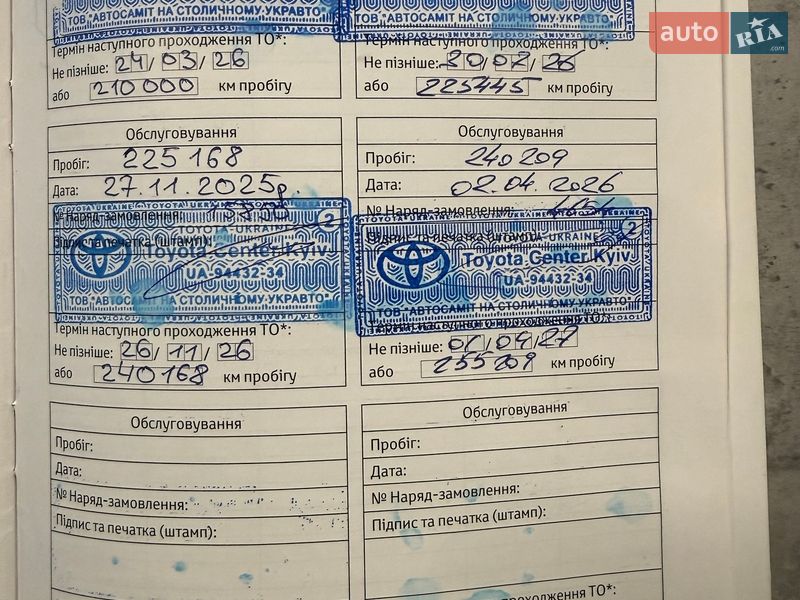 ТОВ "АВТОСАМІТ НА СТОЛИЧНОМУ-УКРАВТО"
Термін наступного проходження ТО*:
Не пізніше: 24/03/26
або 210000 км пробігу
ТОВ "АВТОСАМІТ НА СТОЛИЧНОМУ-УКРАВТО"
Термін наступного проходження ТО*:
Не пізніше: 30/07/26
або 225445 км пробігу
auto RIA
.com
Обслуговування
Пробіг: 225168
Дата: 27.11.2025р.
№ Наряд-замовлення:
Підпис та печатка (штамп):
TOYOTA-UKRAINE
2
Toyota Center Kyiv
UA-94432-34
ТОВ "АВТОСАМІТ НА СТОЛИЧНОМУ-УКРАВТО"
Термін наступного проходження ТО*:
Не пізніше: 26/11/26
або 240168 км пробігу
Обслуговування
Пробіг: 240209
Дата: 02.04.2026
№ Наряд-замовлення:
Підпис та печатка (штамп):
TOYOTA-UKRAINE
2
Toyota Center Kyiv
UA-94432-34
ТОВ "АВТОСАМІТ НА СТОЛИЧНОМУ-УКРАВТО"
Термін наступного проходження ТО*:
Не пізніше: 01/04/27
або 255209 км пробігу
Обслуговування
Пробіг:
Дата:
№ Наряд-замовлення:
Підпис та печатка (штамп):
Обслуговування
Пробіг:
Дата:
№ Наряд-замовлення:
Підпис та печатка (штамп):
проходження ТО*: